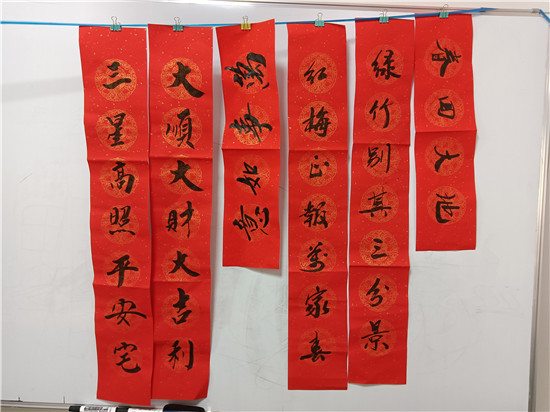 春回大地
绿竹别其三分景
红梅正報萬家春
萬事如意
大順大財大吉利
三星高照平安宅